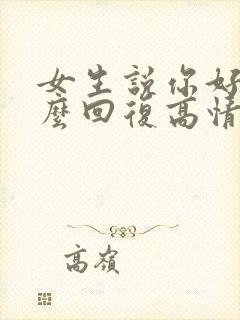 女生說你好
麼回復高情
高嶺